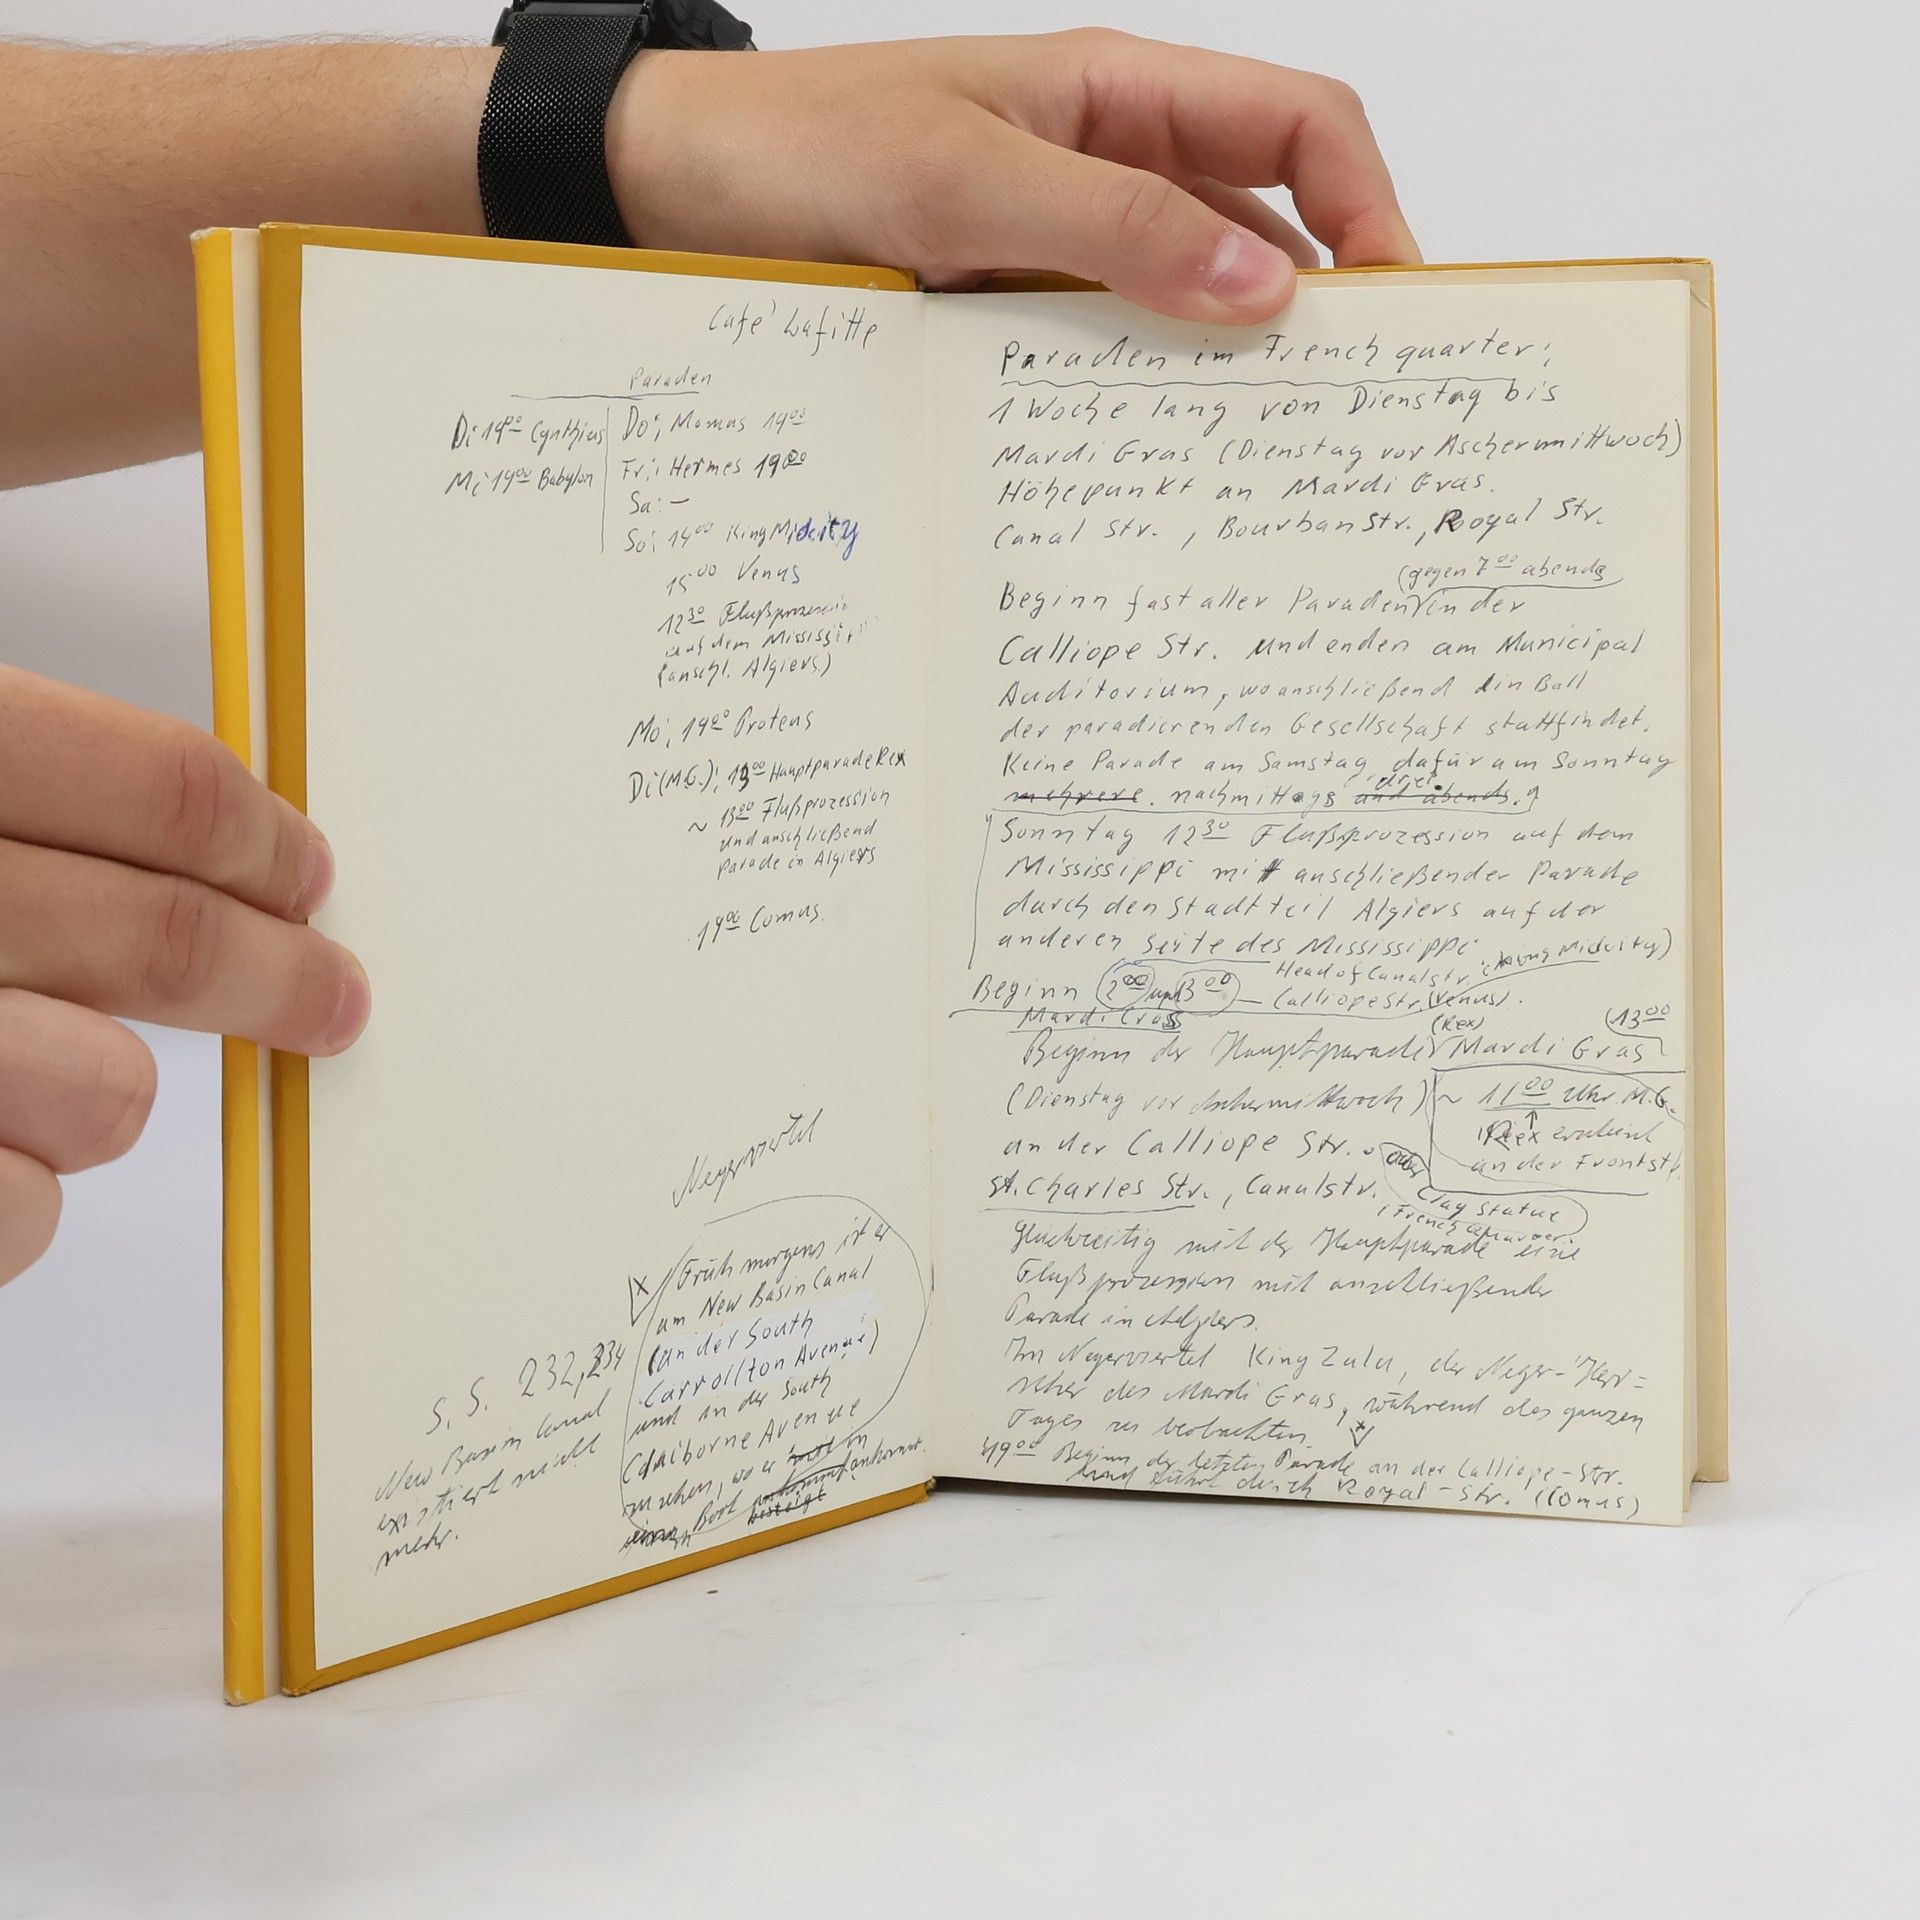 Café Lafitte
Paraden
Di 19⁰⁰ Cynthius
Mi 19⁰⁰ Babylon
Do: Momus 19⁰⁰
Fr: Hermes 19⁰⁰
Sa: —
So: 14⁰⁰ King Midcity
15⁰⁰ Venus
12³⁰ Flußprozessio
auf dem Mississi
(anschl. Algiers)
Mo: 19⁰⁰ Proteus
Di (M.G.): 13⁰⁰ Hauptparade Rex
~ 13⁰⁰ Flußprozession
und anschließend
Parade in Algiers
19⁰⁰ Comus.
Negerviertel
x Früh morgens ist er
am New Basin Canal
(an der South
Carrollton Avenue)
und in der South
Claiborne Avenue
zu sehen, wo er in
Boot ankommt.
besteigt
S. S. 232, 234
New Basin Canal
existiert nicht
mehr.
Paraden im French quarter:
1 Woche lang von Dienstag bis
Mardi Gras (Dienstag vor Aschermittwoch)
Höhepunkt an Mardi Gras.
Canal Str., Bourban Str., Royal Str.
(gegen 7⁰⁰ abends
Beginn fast aller Paraden in der
Calliope Str. und enden am Municipal
Auditorium, wo anschließend ein Ball
der paradierenden Gesellschaft stattfindet.
Keine Parade am Samstag, dafür am Sonntag
drei
mehrere nachmittags und abends.
Sonntag 12³⁰ Flußprozession auf dem
Mississippi mit anschließender Parade
durch den Stadtteil Algiers auf der
anderen Seite des Mississippi
Head of Canalstr. (King Midcity)
Beginn 2⁰⁰ und 3⁰⁰ — Calliope Str. (Venus).
Mardi Gras
(Rex) (13⁰⁰
Beginn der Hauptparade Mardi Gras
(Dienstag vor Aschermittwoch)
~ 11⁰⁰ Uhr M.G.
Rex erscheint
an der Frontstr.
an der Calliope Str.
St. Charles Str., Canalstr.
oder
Clay Statue
(French quarter)
Gleichzeitig mit der Hauptparade eine
Flußprozession mit anschließender
Parade in Algiers.
Im Negerviertel King Zulu, der Neger-Herr=
scher des Mardi Gras, während des ganzen
Tages zu beobachten x
19⁰⁰ Beginn der letzten Parade an der Calliope-Str.
und führt durch Royal-Str. (Comus)